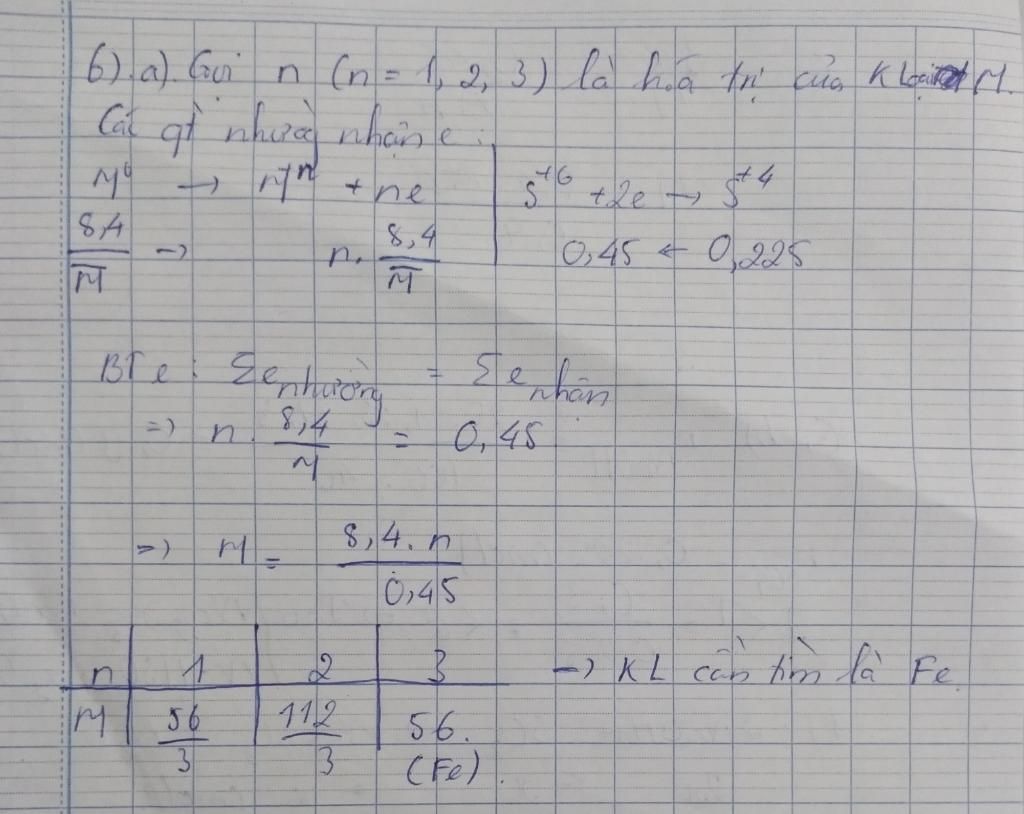 6). a). Gọi n (n = 1, 2, 3) là hóa trị của K Loại M.
Các qt nhường nhận e :
M⁰ → M⁺ⁿ + ne | S⁺⁶ + 2e → S⁺⁴
8,4/M → n. 8,4/M | 0,45 ← 0,225
BTe : Σe nhường = Σe nhận
=> n. 8,4/M = 0,45
=> M = 8,4. n/0,45
n | 1 | 2 | 3 → KL cần tìm là Fe.
M | 56/3 | 112/3 | 56.
(Fe).